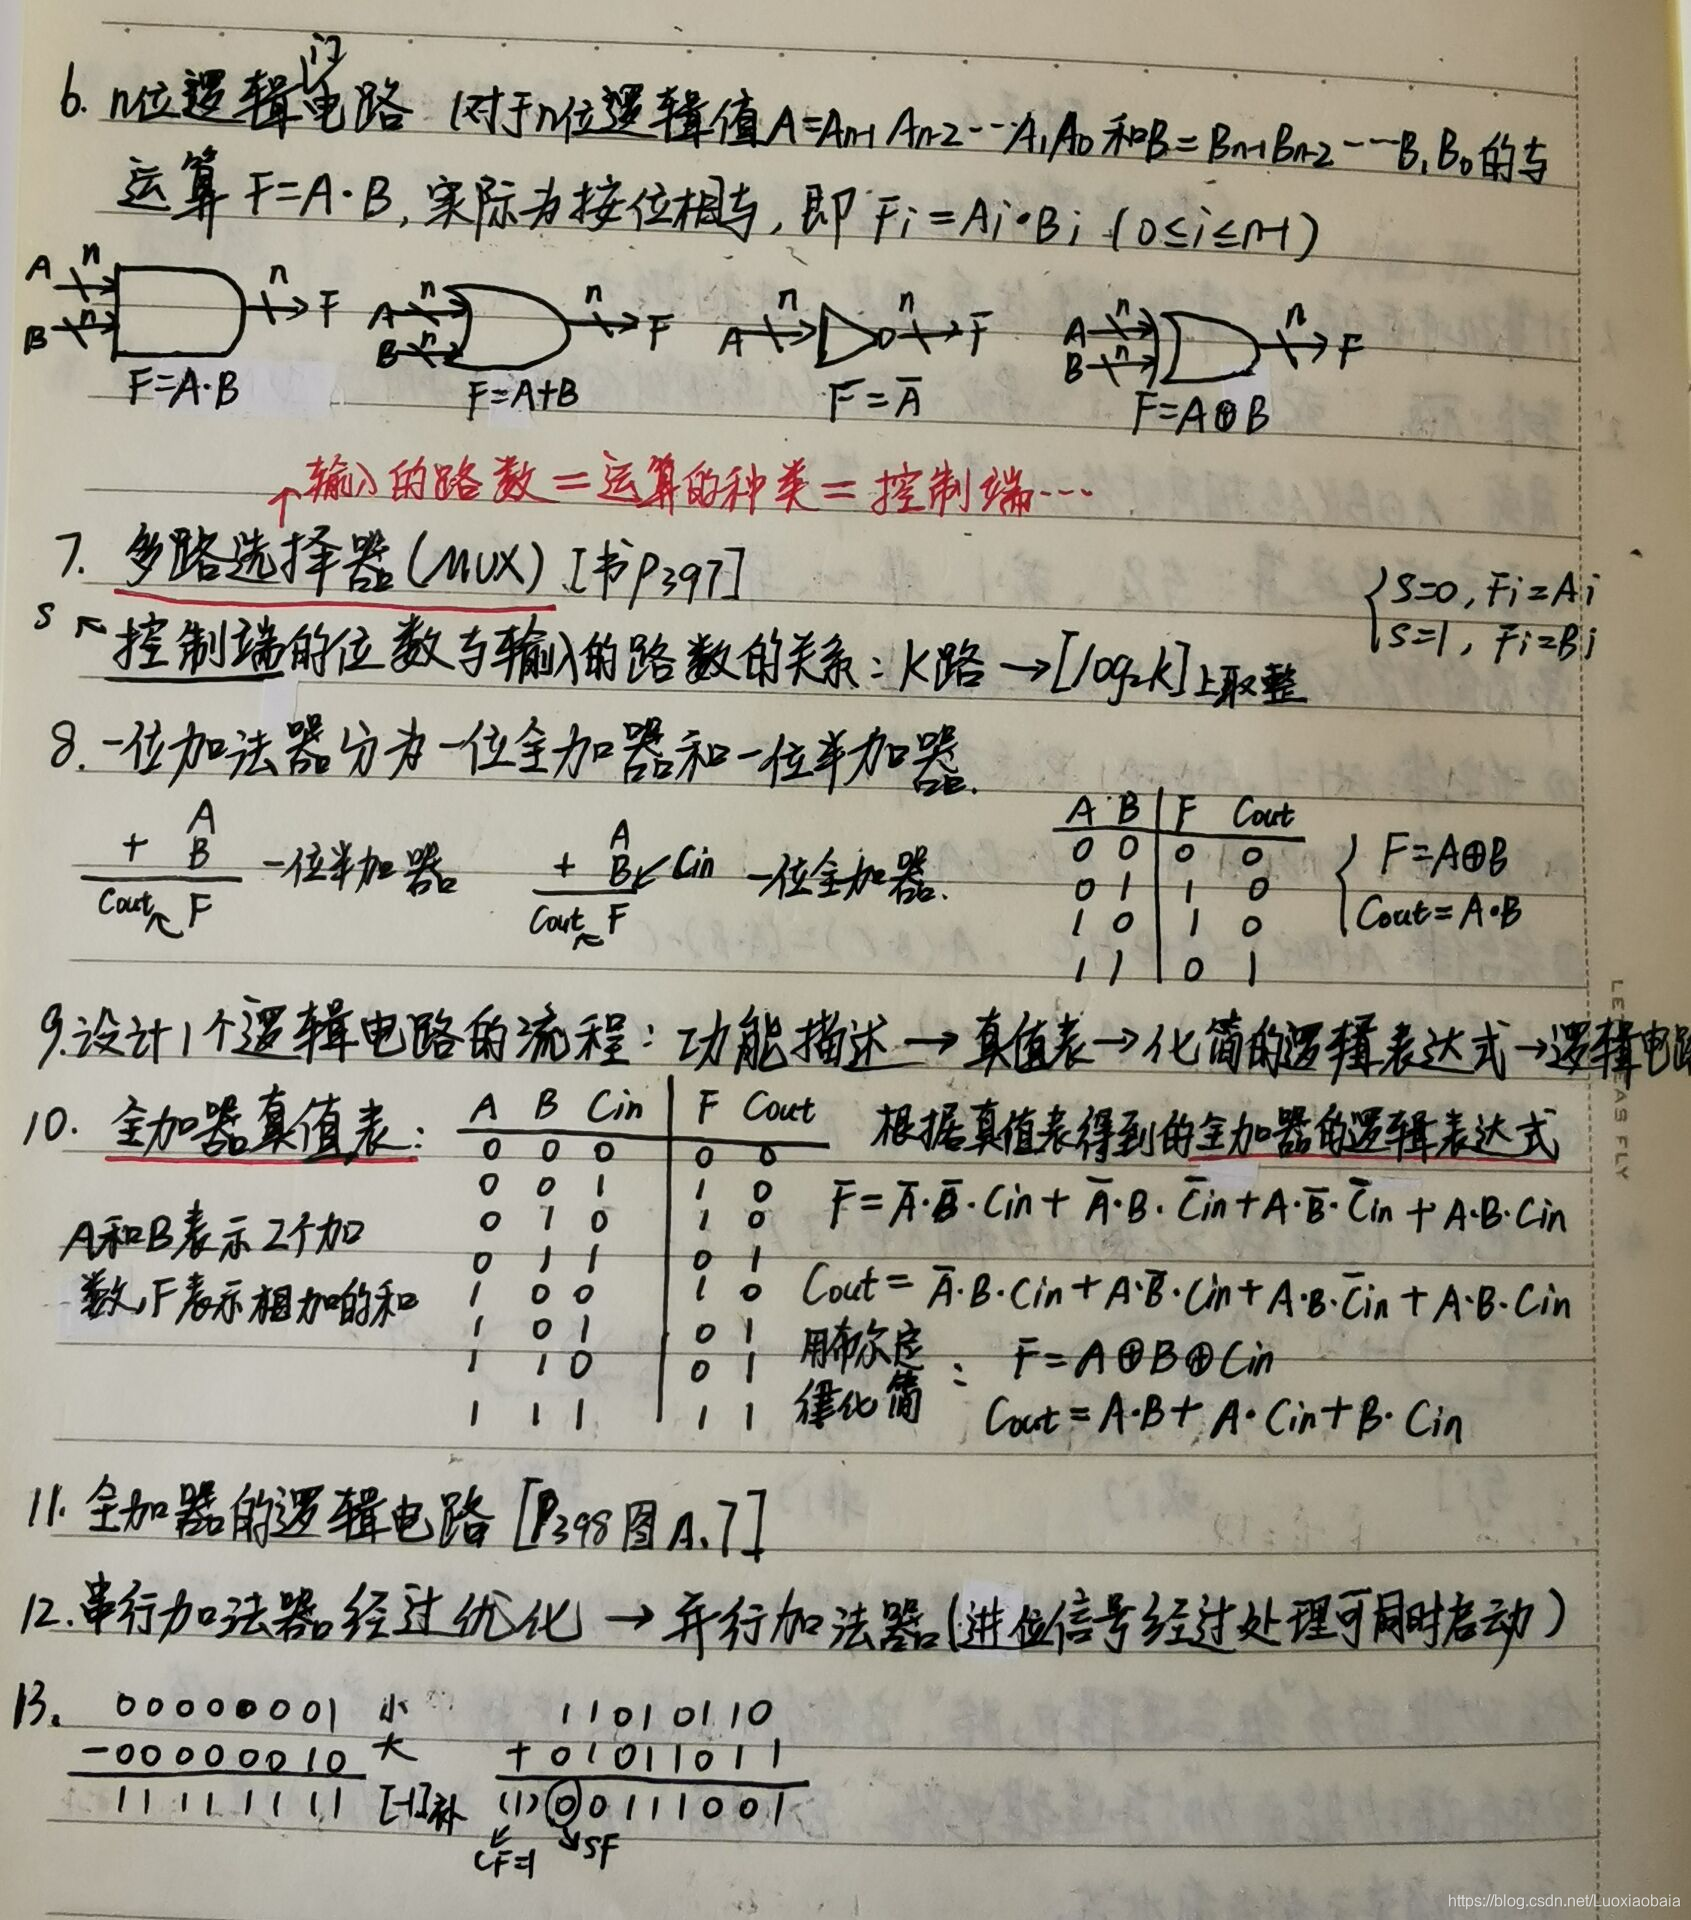 6. n位逻辑门电路 (对于n位逻辑值A=An-1 An-2…A1A0和B=Bn-1Bn-2…B1B0的与
运算F=A·B,实际为按位相与,即Fi=Ai·Bi (0≤i≤n-1)
A n n F A n n F A n n F A n n F
B n B n B n
F=A·B F=A+B F=Ā F=A⊕B
↑输入的路数=运算的种类=控制端…
7. 多路选择器(MUX) [书P397]
{S=0, Fi=Ai
S=1, Fi=Bi
S ↖控制端的位数与输入的路数的关系:k路→[log₂k]上取整
8. 一位加法器分为一位全加器和一位半加器.
A
+ B 一位半加器
Cout F
A
+ B ↙Cin 一位全加器.
Cout F
A B | F Cout
0 0 | 0 0
0 1 | 1 0
1 0 | 1 0
1 1 | 0 1
{F=A⊕B
Cout=A·B
9.设计1个逻辑电路的流程:功能描述→真值表→化简的逻辑表达式→逻辑电路
10. 全加器真值表:
A B Cin | F Cout
0 0 0 | 0 0
0 0 1 | 1 0
0 1 0 | 1 0
0 1 1 | 0 1
1 0 0 | 1 0
1 0 1 | 0 1
1 1 0 | 0 1
1 1 1 | 1 1
A和B表示2个加
数,F表示相加的和
根据真值表得到的全加器的逻辑表达式
F=Ā·B̄·Cin+Ā·B·C̄in+A·B̄·C̄in+A·B·Cin
Cout=Ā·B·Cin+A·B̄·Cin+A·B·C̄in+A·B·Cin
用布尔定
律化简 : F=A⊕B⊕Cin
Cout=A·B+A·Cin+B·Cin
11. 全加器的逻辑电路 [P398图A.7]
12.串行加法器经过优化→并行加法器(进位信号经过处理可同时启动)
13. 00000001 小
-00000010 大
11111111 [-1]补
11010110
+01011011
(1)00111001
CF=1 SF
LE
AS FLY
https://blog.csdn.net/Luoxiaobaia